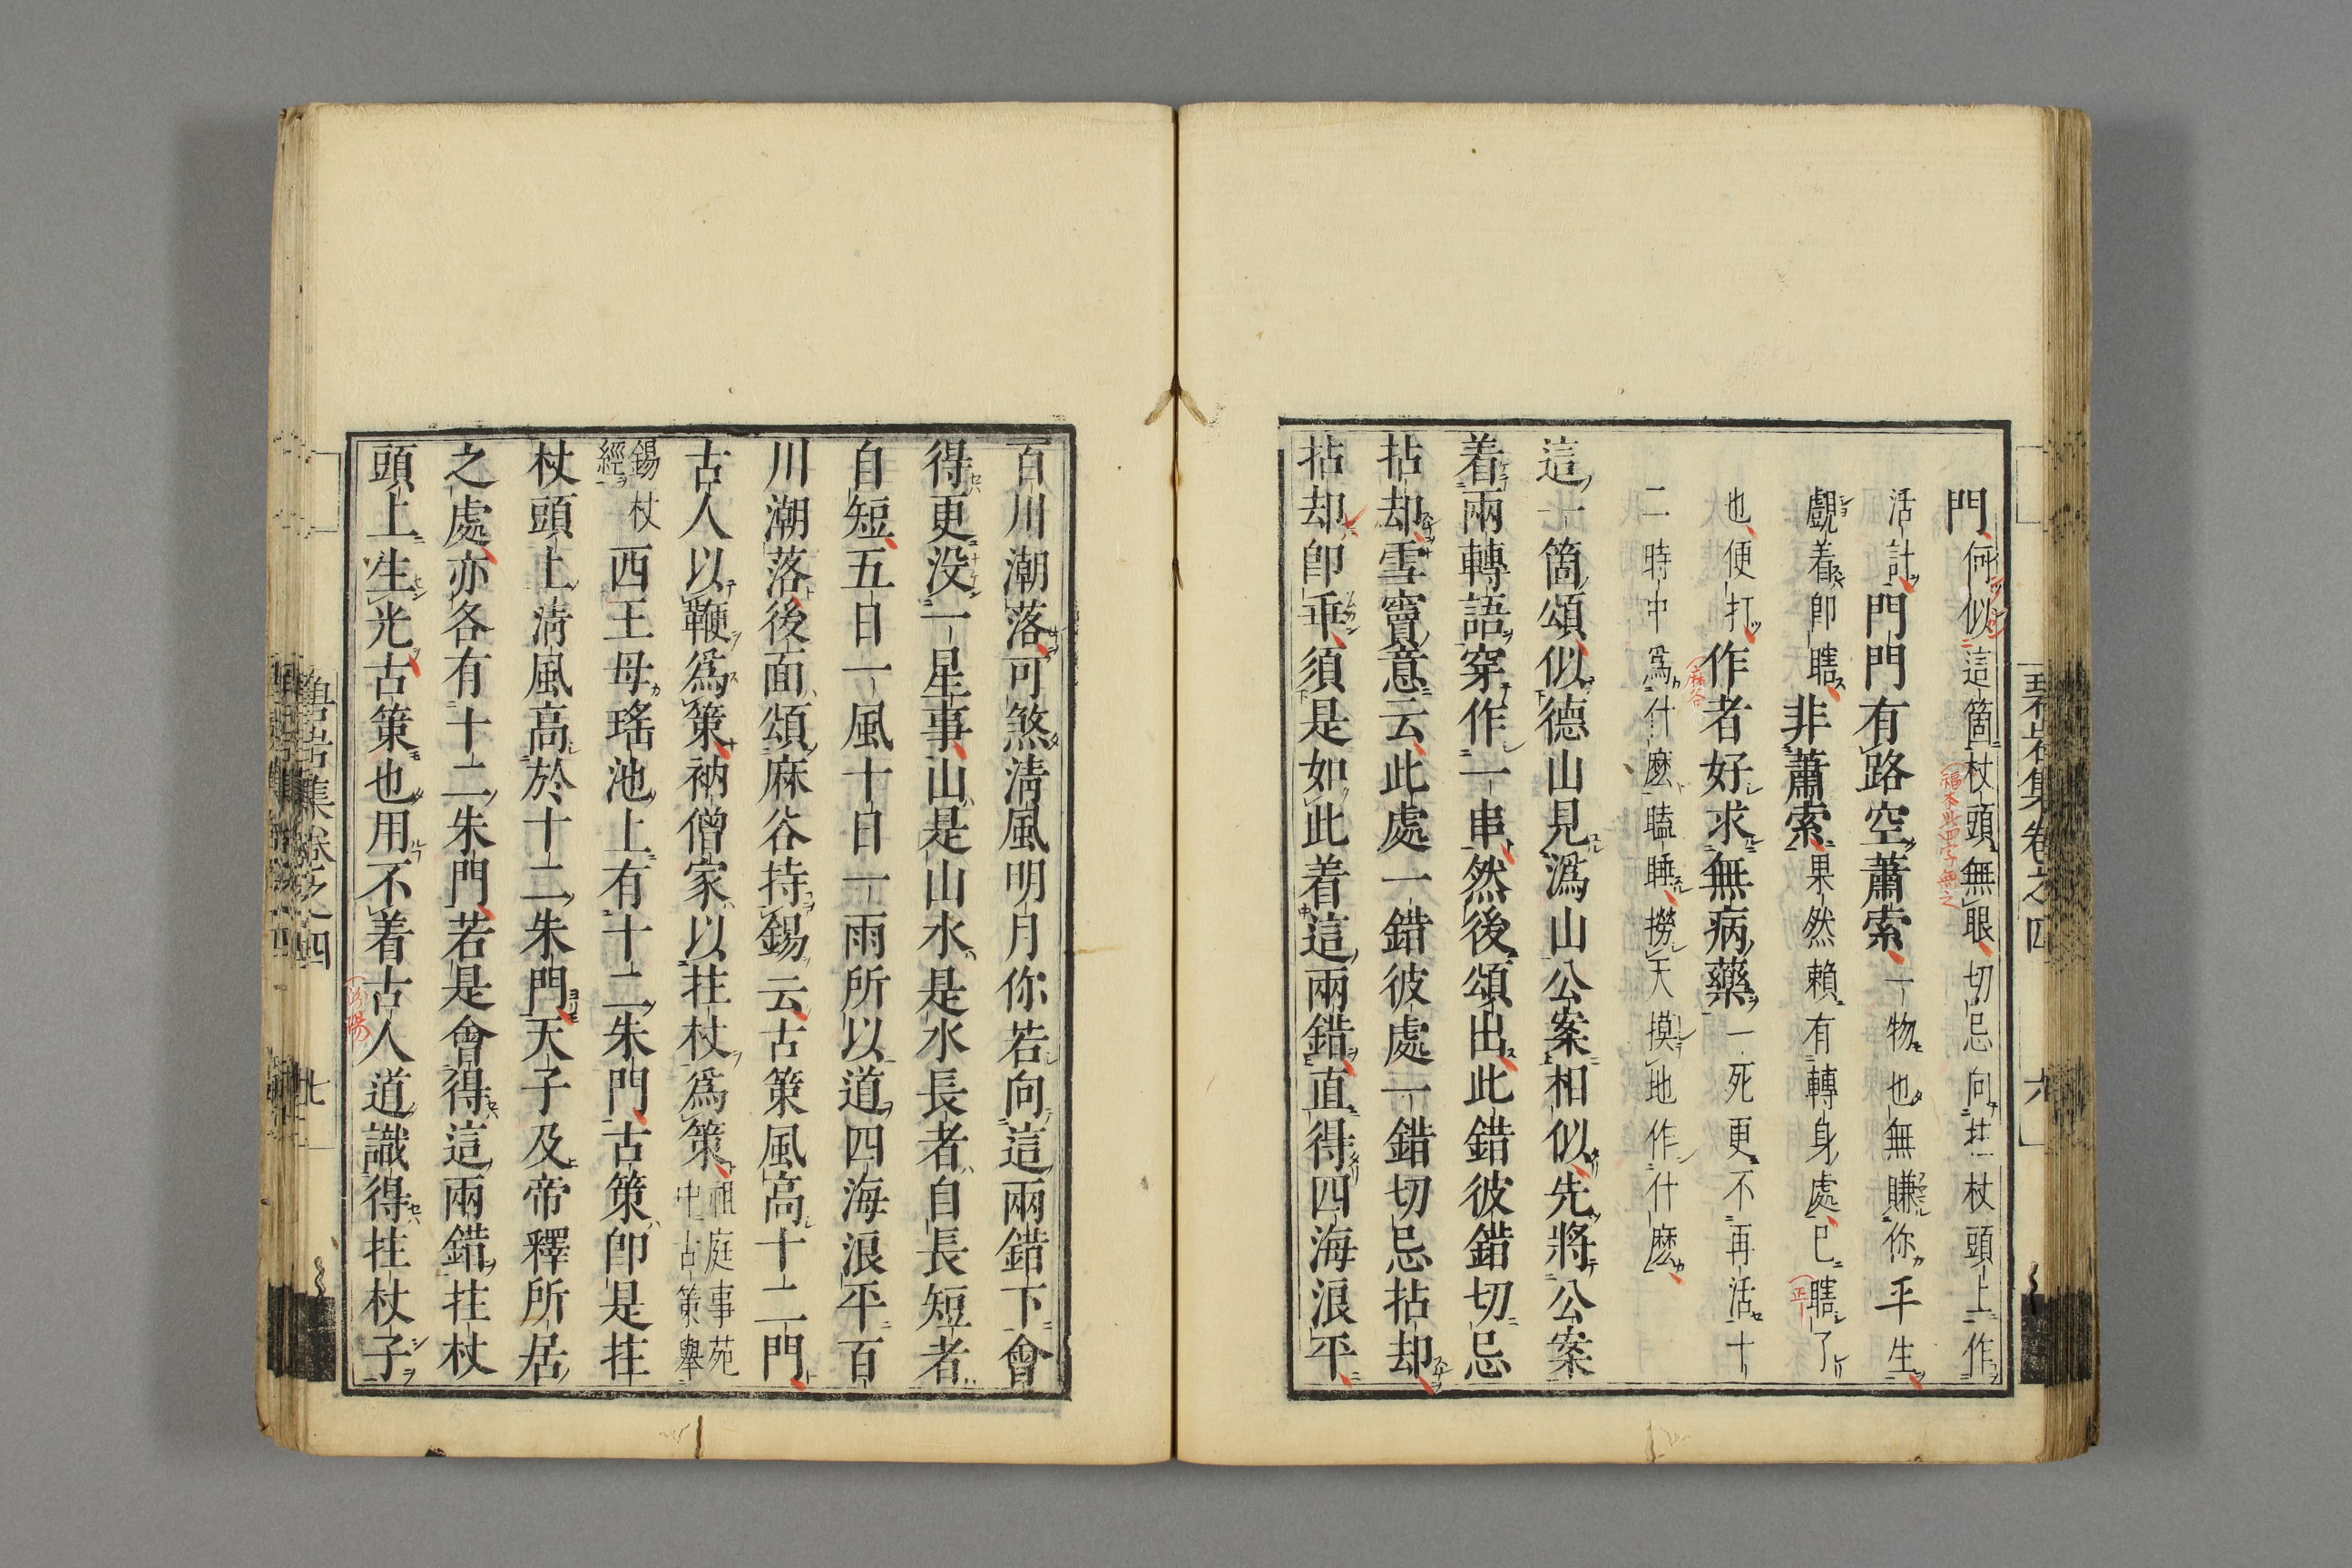 門何似這箇杖頭無眼切忌向拄杖頭上作
活計門門有路空蕭索一物也無賺你平生
覷着即瞎非蕭索果然賴有轉身處已瞎了
也便打作者好求無病藥一死更不再活十
二時中爲什麽瞌睡撈天摸地作什麽
這一箇頌似德山見潙山公案相似先將公案
着兩轉語穿作一串然後頌出此錯彼錯切忌
拈却雪竇意云此處一錯彼處一錯切忌拈却
拈却即乖須是如此着這兩錯直得四海浪平
碧岩集卷之四
六
福本此四字無之
麻谷
百川潮落可煞清風明月你若向這兩錯下會
得更没一星事山是山水是水長者自長短者
自短五日一風十日一雨所以道四海浪平百
川潮落後面頌麻谷持錫云古策風高十二門
古人以鞭爲策衲僧家以拄杖爲策祖庭事苑中古策舉
錫杖經西王母瑤池上有十二朱門古策即是拄
杖頭上清風高於十二朱門天子及帝釋所居
之處亦各有十二朱門若是會得這兩錯拄杖
頭上生光古策也用不着古人道識得拄杖子
碧岩集卷之四
七